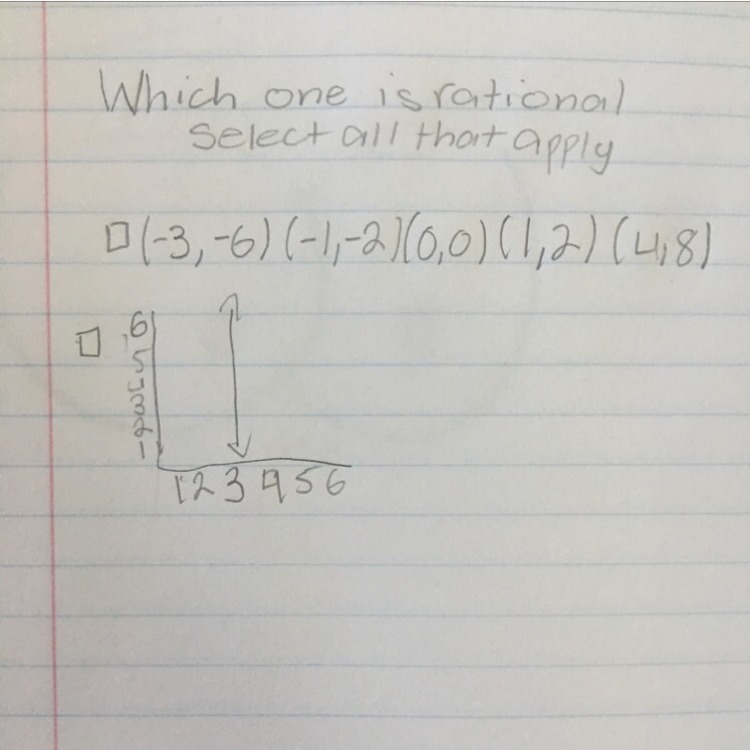 Which one is rational
Select all that apply
(-3,-6) (-1,-2) (0,0) (1,2) (4,8)
6
5
4
3
2
1
1 2 3 4 5 6